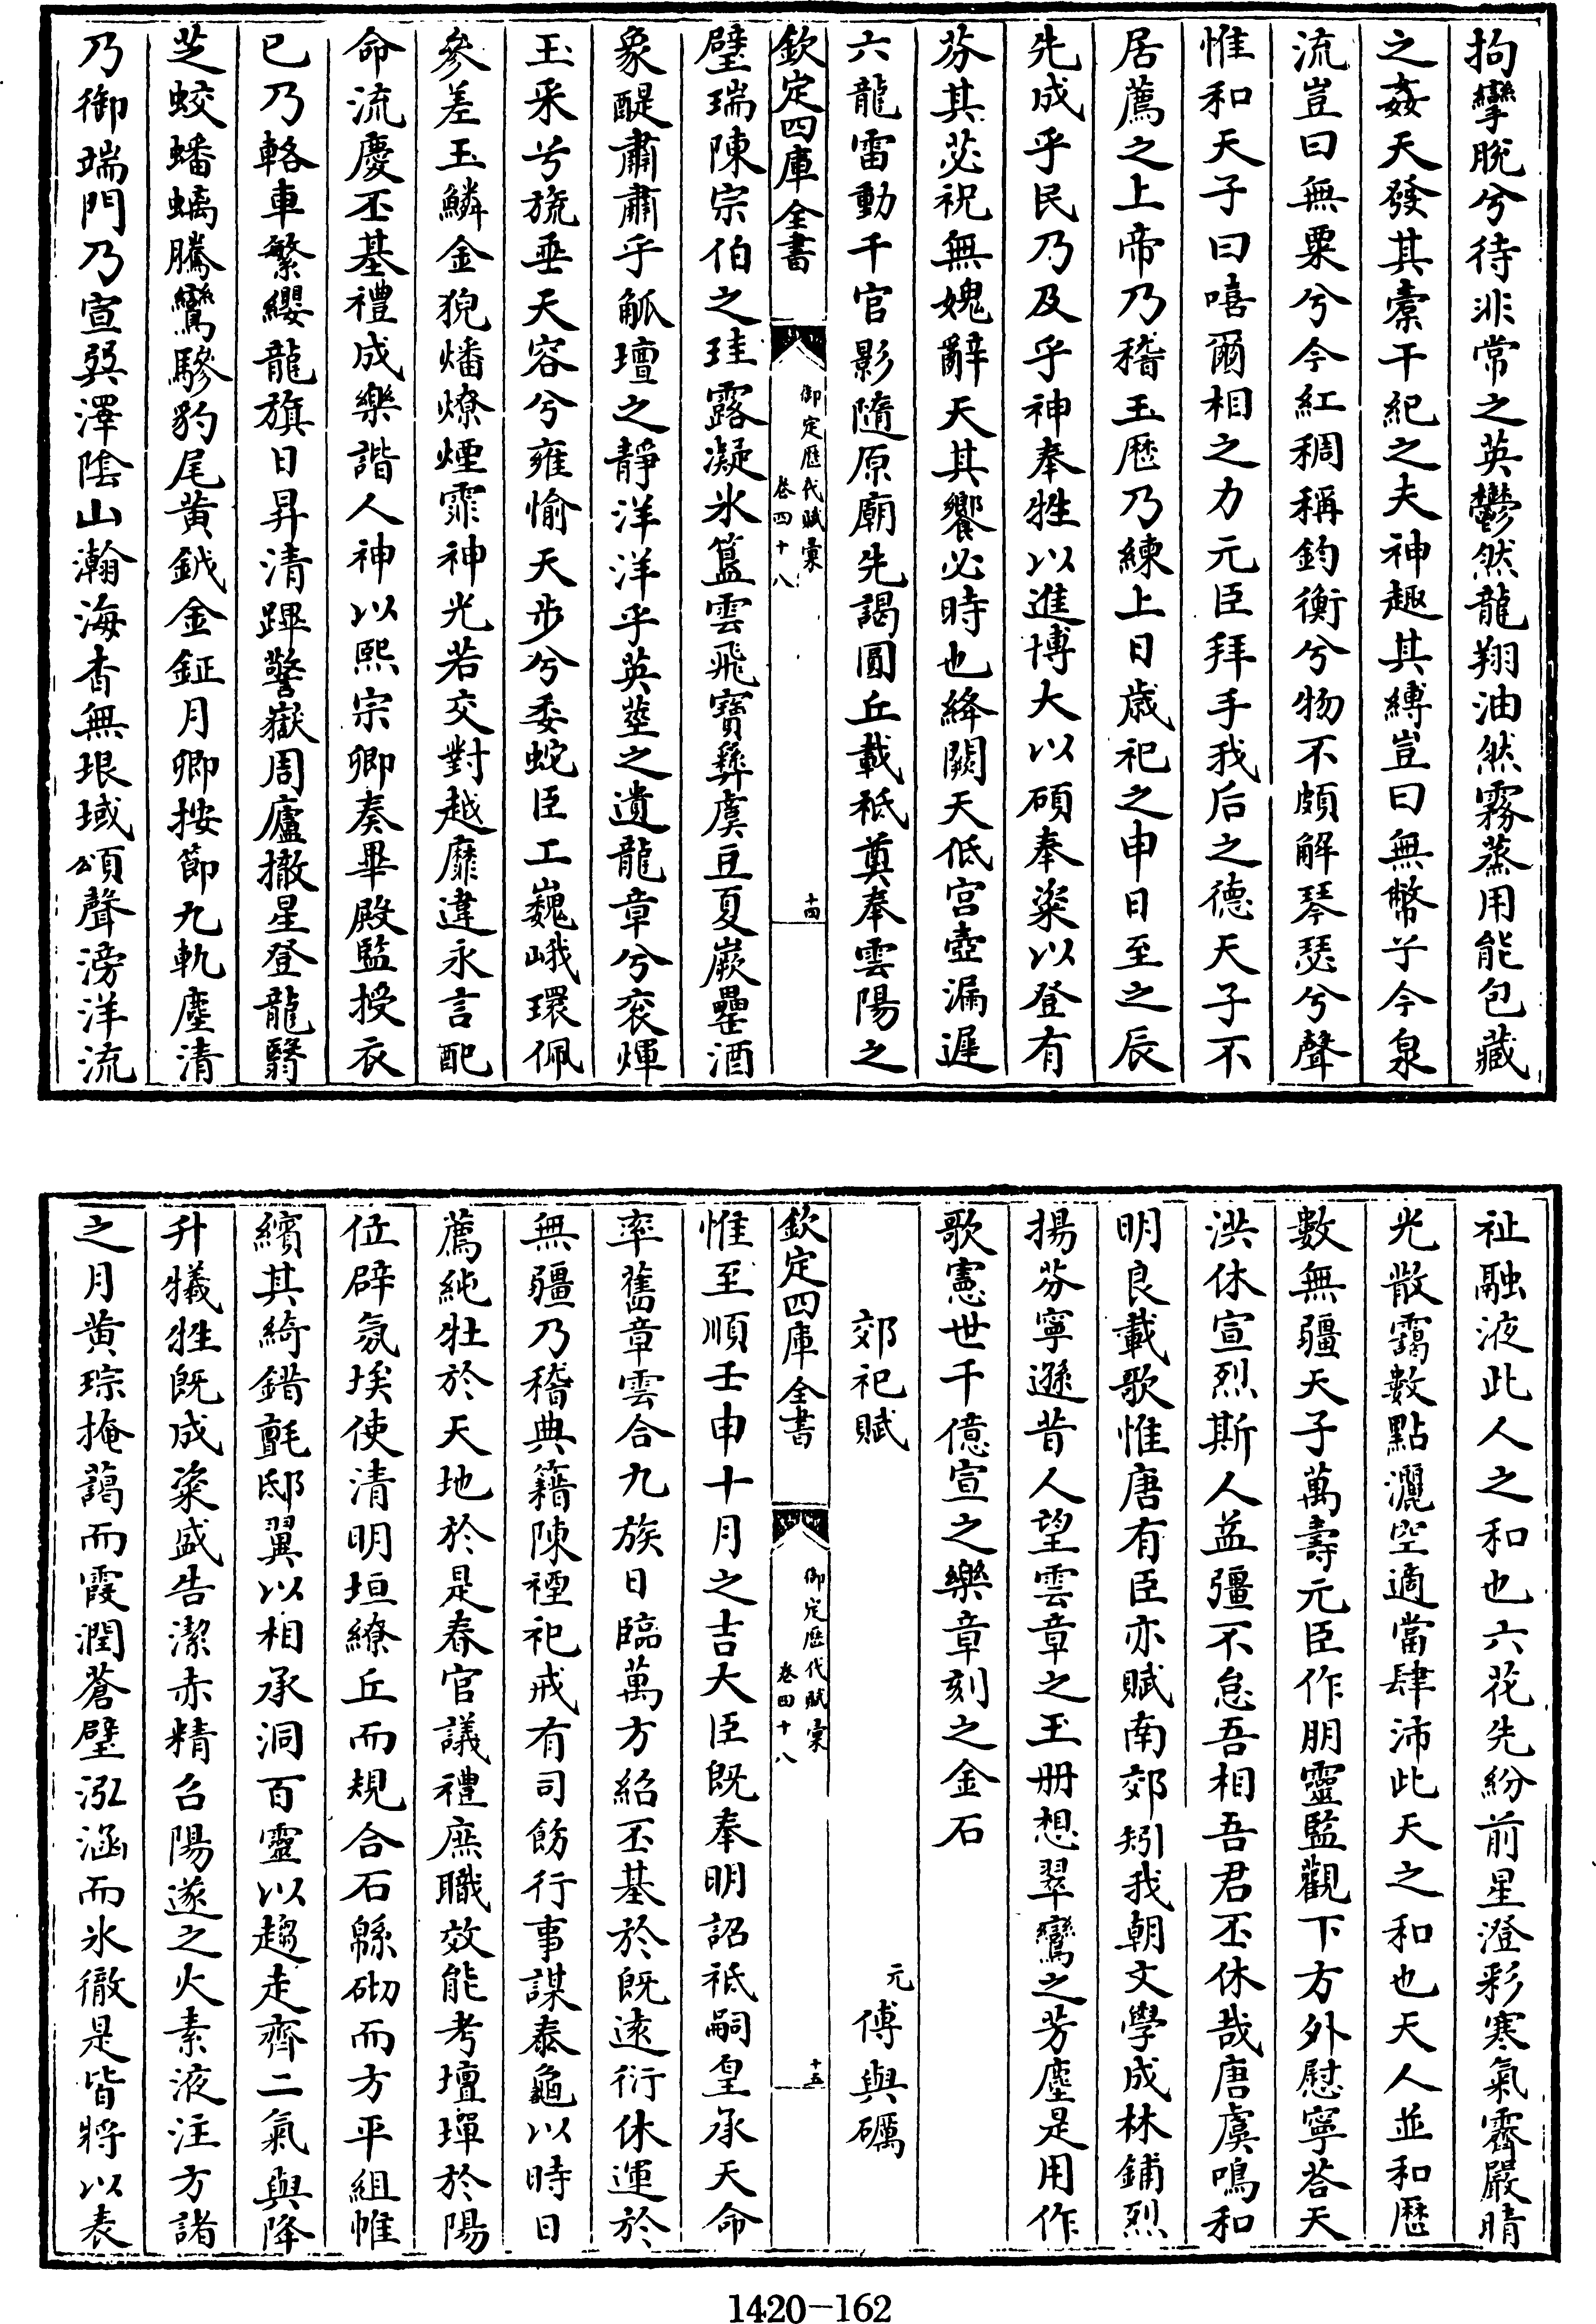 拘攣脫兮待非常之英鬱然龍翔油然霧蒸用能包藏
之姦天發其橐干紀之夫神趣其縛豈曰無幣兮今泉
流豈曰無粟兮今紅稠稱鈞衡兮物不頗解琴瑟兮聲
惟和天子曰嘻爾相之力元臣拜手我后之德天子不
居薦之上帝乃稽玉歷乃練上日歲祀之申日至之辰
先成乎民乃及乎神奉牲以進博大以碩奉粢以登有
芬其苾祝無媿辭天其饗必時也絳闕天低宮壺漏遲
六龍雷動千官影隨原廟先謁圓丘載秪奠奉雲陽之
欽定四庫全書
御定歷代賦彙
卷四十八
十四
璧瑞陳宗伯之珪露凝氷簋雲飛寶彝虞豆夏嶡罍酒
象醍肅肅乎觚壇之靜洋洋乎英莖之遺龍章兮衮煇
玉采兮旒垂天容兮雍愉天步兮委蛇臣工巍峨環佩
參差玉鱗金猊燔燎煙霏神光若交對越靡違永言配
命流慶丕基禮成樂諧人神以熙宗卿奏畢殿監授衣
已乃輅車繁纓龍旗日昇清蹕警嶽周廬撤星登龍翳
芝蛟蟠螭騰鸞驂豹尾黄鉞金鉦月卿按節九軌塵清
乃御端門乃宣巽澤陰山瀚海杳無垠域頌聲滂洋流
祉融液此人之和也六花先紛前星澄彩寒氣霽嚴晴
光散靄數點灑空適當肆沛此天之和也天人並和歷
數無疆天子萬壽元臣作朋靈監觀下方外慰寧荅天
洪休宣烈斯人益彊不怠吾相吾君丕休哉唐虞鳴和
明良載歌惟唐有臣亦賦南郊矧我朝文學成林鋪烈
揚芬寧遜昔人望雲章之玉册想翠鸞之芳塵是用作
歌憲世千億宣之樂章刻之金石
郊祀賦
元 傅與礪
欽定四庫全書
御定歷代賦彙
卷四十八
十五
惟至順壬申十月之吉大臣既奉明詔祗嗣皇承天命
率舊章雲合九族日臨萬方紹丕基於既遠衍休運於
無疆乃稽典籍陳禋祀戒有司飭行事謀泰龜以時日
薦純牡於天地於是春官議禮庶職效能考壇墠於陽
位辟氛埃使清明垣繚丘而規合石緜砌而方平組帷
繽其綺錯氈邸翼以相承洞百靈以趨走齊二氣與降
升犧牲既成粢盛告潔赤精召陽遂之火素液注方諸
之月黄琮掩藹而霞潤蒼璧泓涵而氷徹是皆將以表
1420-162